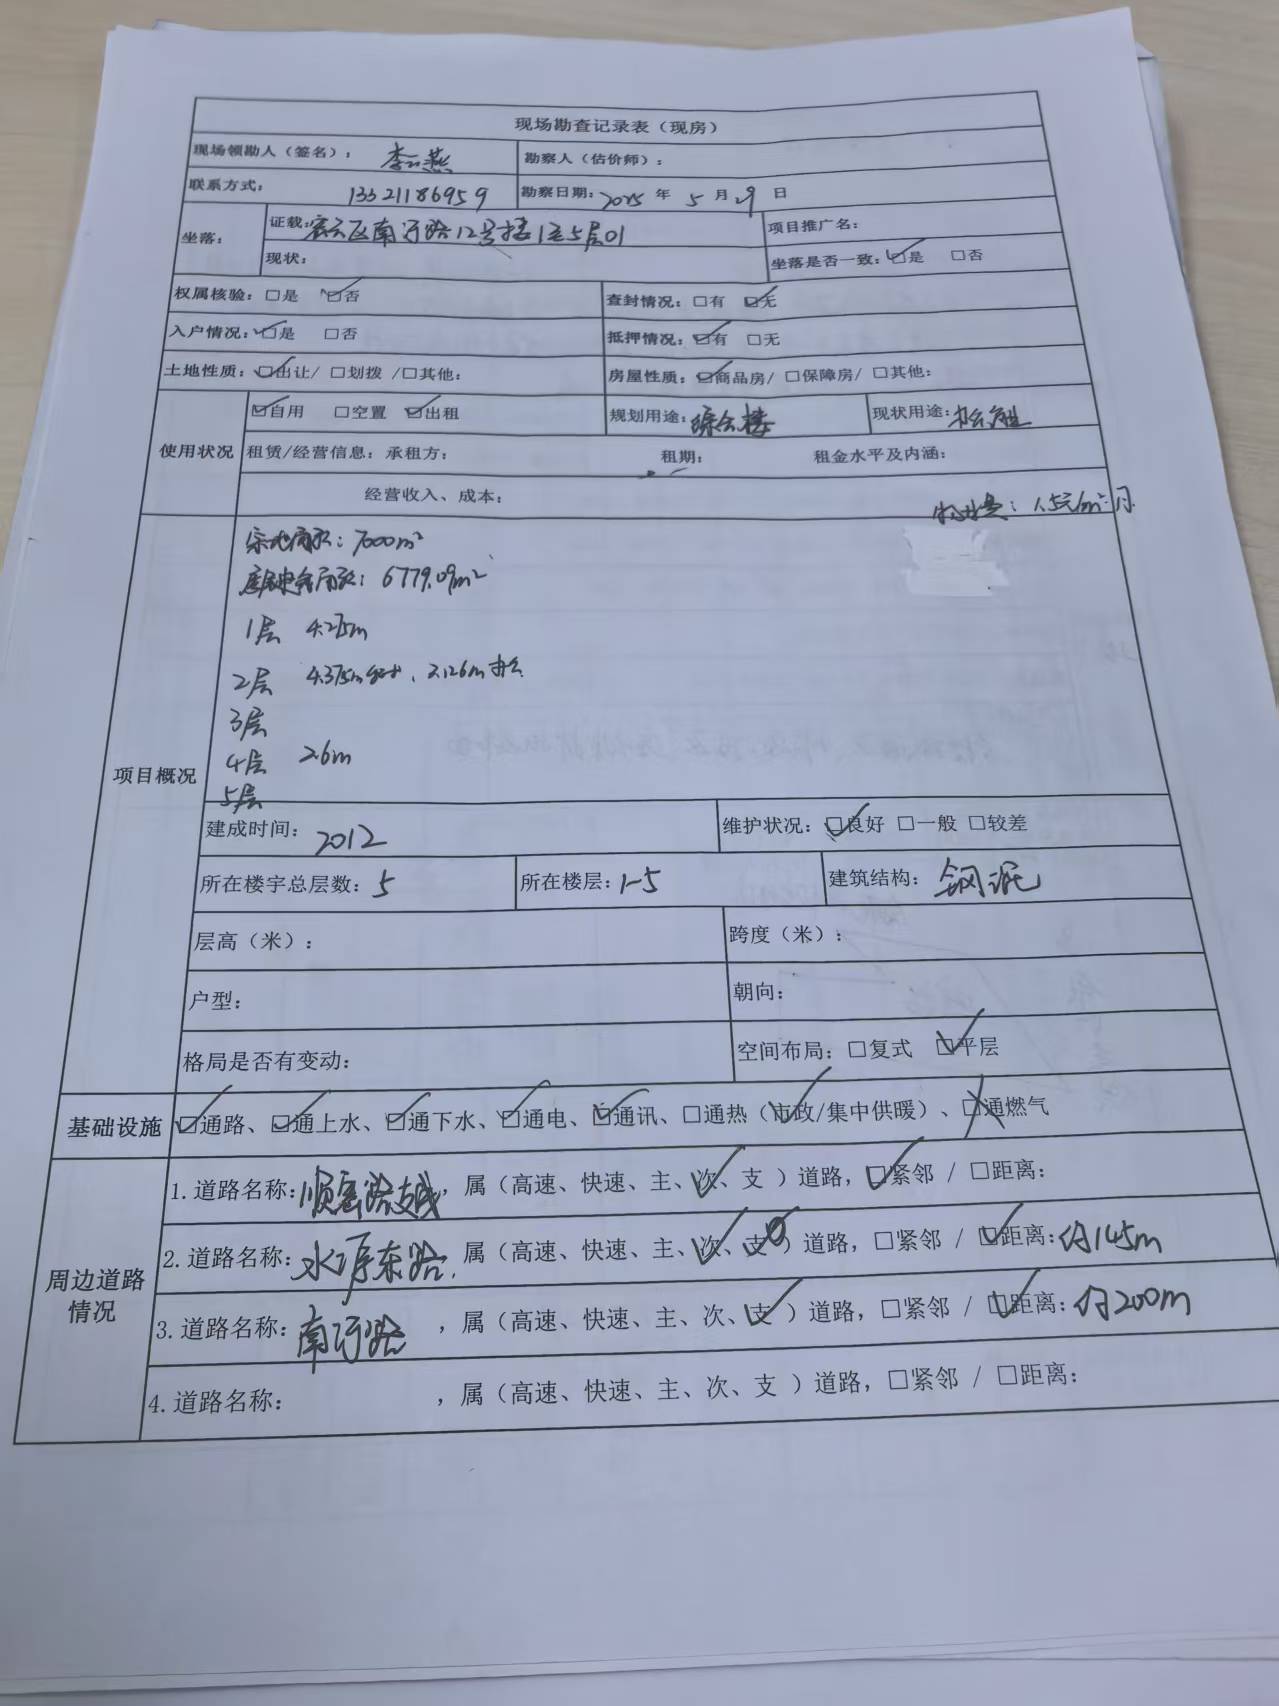 现场勘查记录表（现房）
现场领勘人（签名）： 勘察人（估价师）：
联系方式： 13321186959 勘察日期：2025 年 5 月 29 日
坐落： 证载：密云区南河路12号楼1至5层01 项目推广名：
现状： 坐落是否一致：☑是 □否
权属核验：□是 ☑否 查封情况：□有 ☑无
入户情况：☑是 □否 抵押情况：☑有 □无
土地性质：☑出让/ □划拨 /□其他： 房屋性质：☑商品房/ □保障房/ □其他：
使用状况 ☑自用 □空置 ☑出租 规划用途：综合楼 现状用途：
租赁/经营信息：承租方： 租期： 租金水平及内涵：
经营收入、成本：
物业费：1.5元/m²·月
宗地面积：7000m²
房屋建筑面积：6779.09m²
1层 4.25m
2层 4.375m 2.126m 办公
3层
4层 2.6m
5层
项目概况
建成时间：2012 维护状况：☑良好 □一般 □较差
所在楼宇总层数：5 所在楼层：1-5 建筑结构：钢混
层高（米）： 跨度（米）：
户型： 朝向：
格局是否有变动： 空间布局：□复式 ☑平层
基础设施 ☑通路、☑通上水、☑通下水、☑通电、☑通讯、□通热（市政/集中供暖）、☒通燃气
周边道路情况
1.道路名称：顺密路支线，属（高速、快速、主、次、支 ）道路，☑紧邻 / □距离：
2.道路名称：水源东路，属（高速、快速、主、次、支 ）道路，□紧邻 / ☑距离：约145m
3.道路名称：南河路 ，属（高速、快速、主、次、支 ）道路，□紧邻 / ☑距离：约200m
4.道路名称： ，属（高速、快速、主、次、支 ）道路，□紧邻 / □距离：